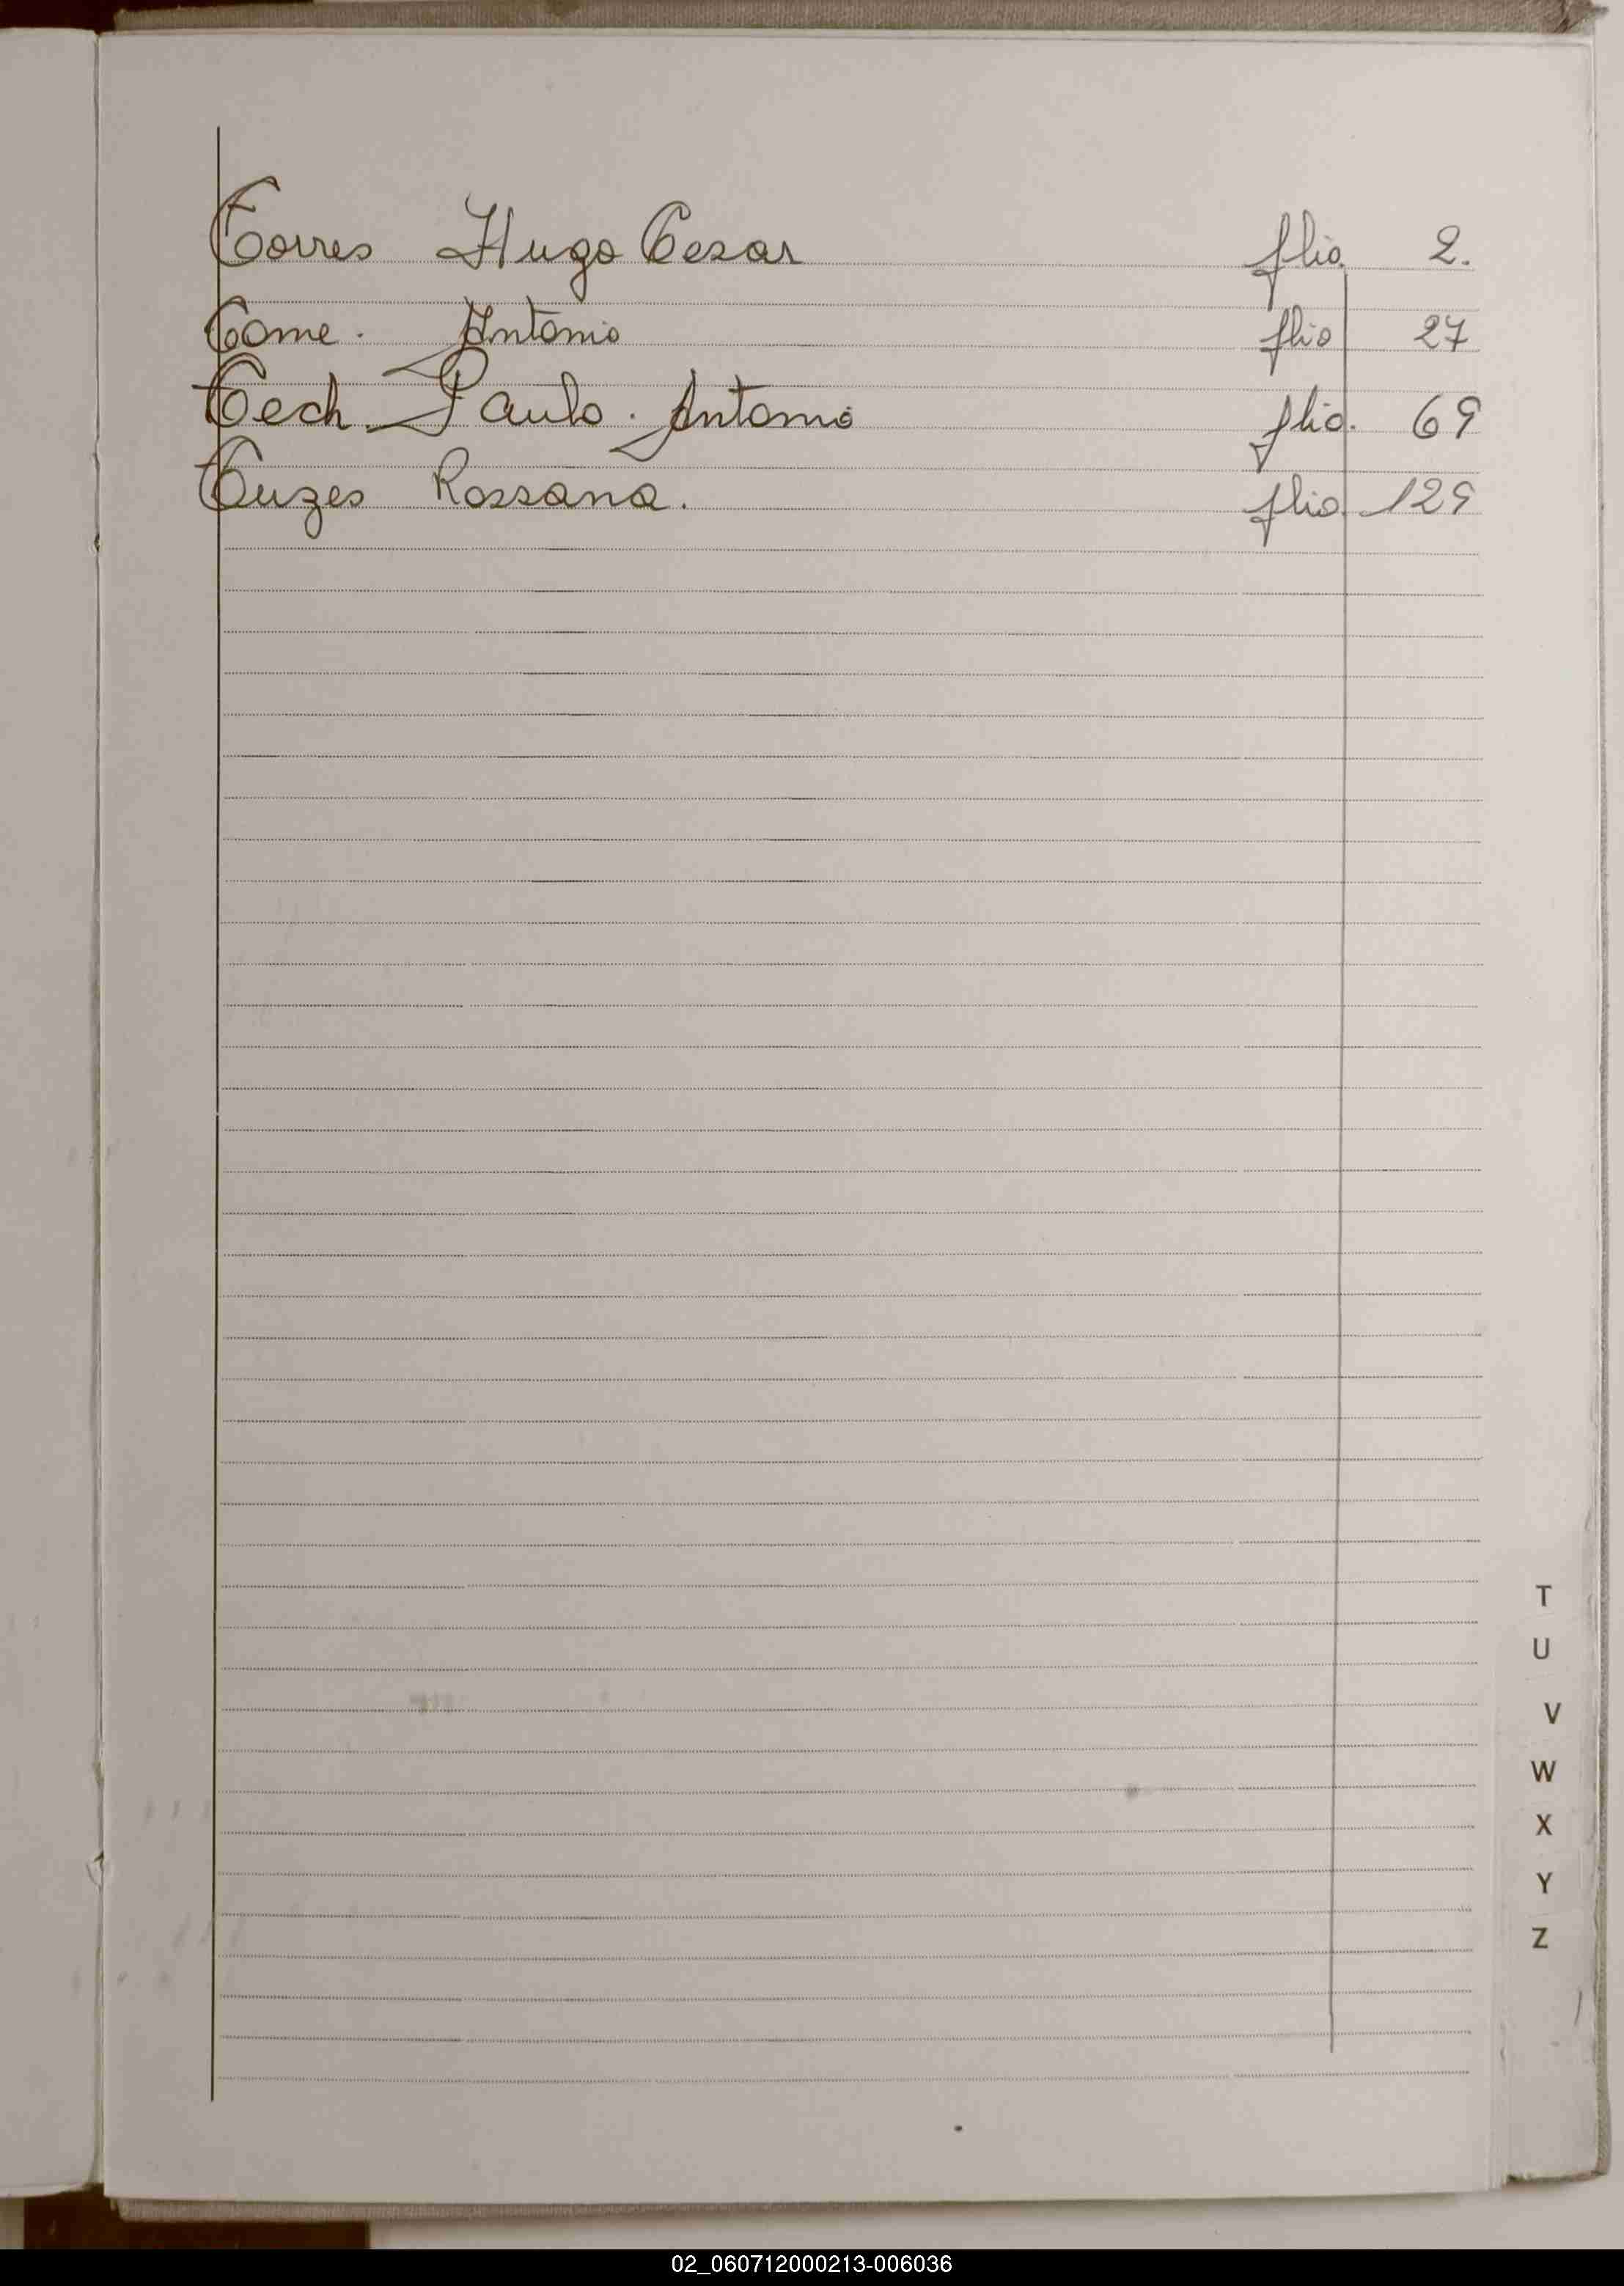 Torres Hugo Cesar flio. 2.
Tome. Antonio flio 27
Tech Paulo. Antonio flio. 69
Tuzes Rossana. flio. 129
T
U
V
W
X
Y
Z
02_060712000213-006036